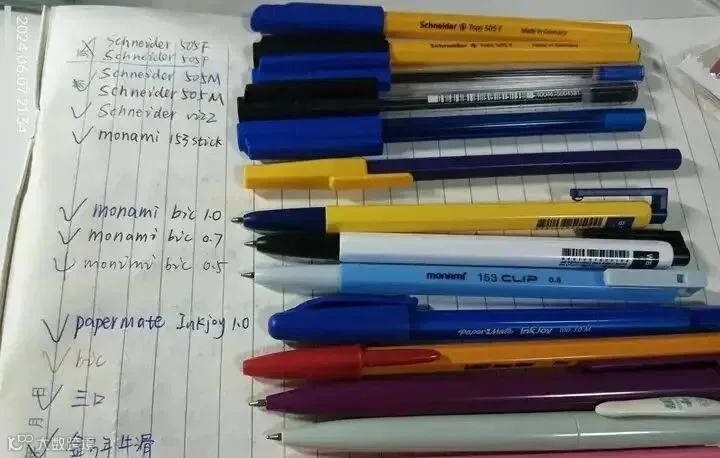 2024.06.07 21:34
Schneider 505F
Schneider 505F
Schneider 505M
Schneider 505M
Schneider vizz
monami 153 stick
monami bic 1.0
monami bic 0.7
monimi bic 0.5
papermate Inkjoy 1.0
bic
三口
牛滑
Schneider Tops 505 F Made in Germany
Schneider Tops 505 F
monami 153 CLIP 0.5
Paper Mate InkJoy 100 1.0 M
大数跨境